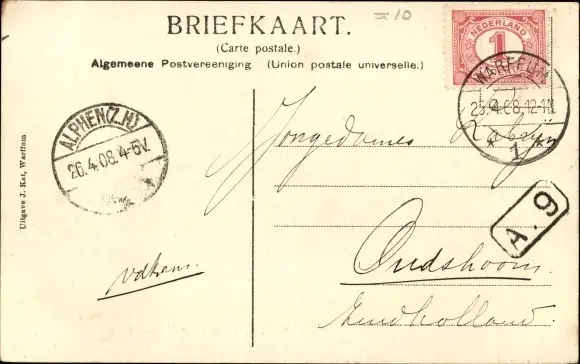 = 10
BRIEFKAART.
(Carte postale.)
Algemeene Postvereeniging (Union postale universelle.)
NEDERLAND
1
WARFFUM
25.4.08.12-1N
* 1 *
ALPHEN (Z.H)
26.4.08.4-5V.
Jongedames
A. 9
Oudshoorn.
Zuidholland.
Uitgave J. Kat, Warffum